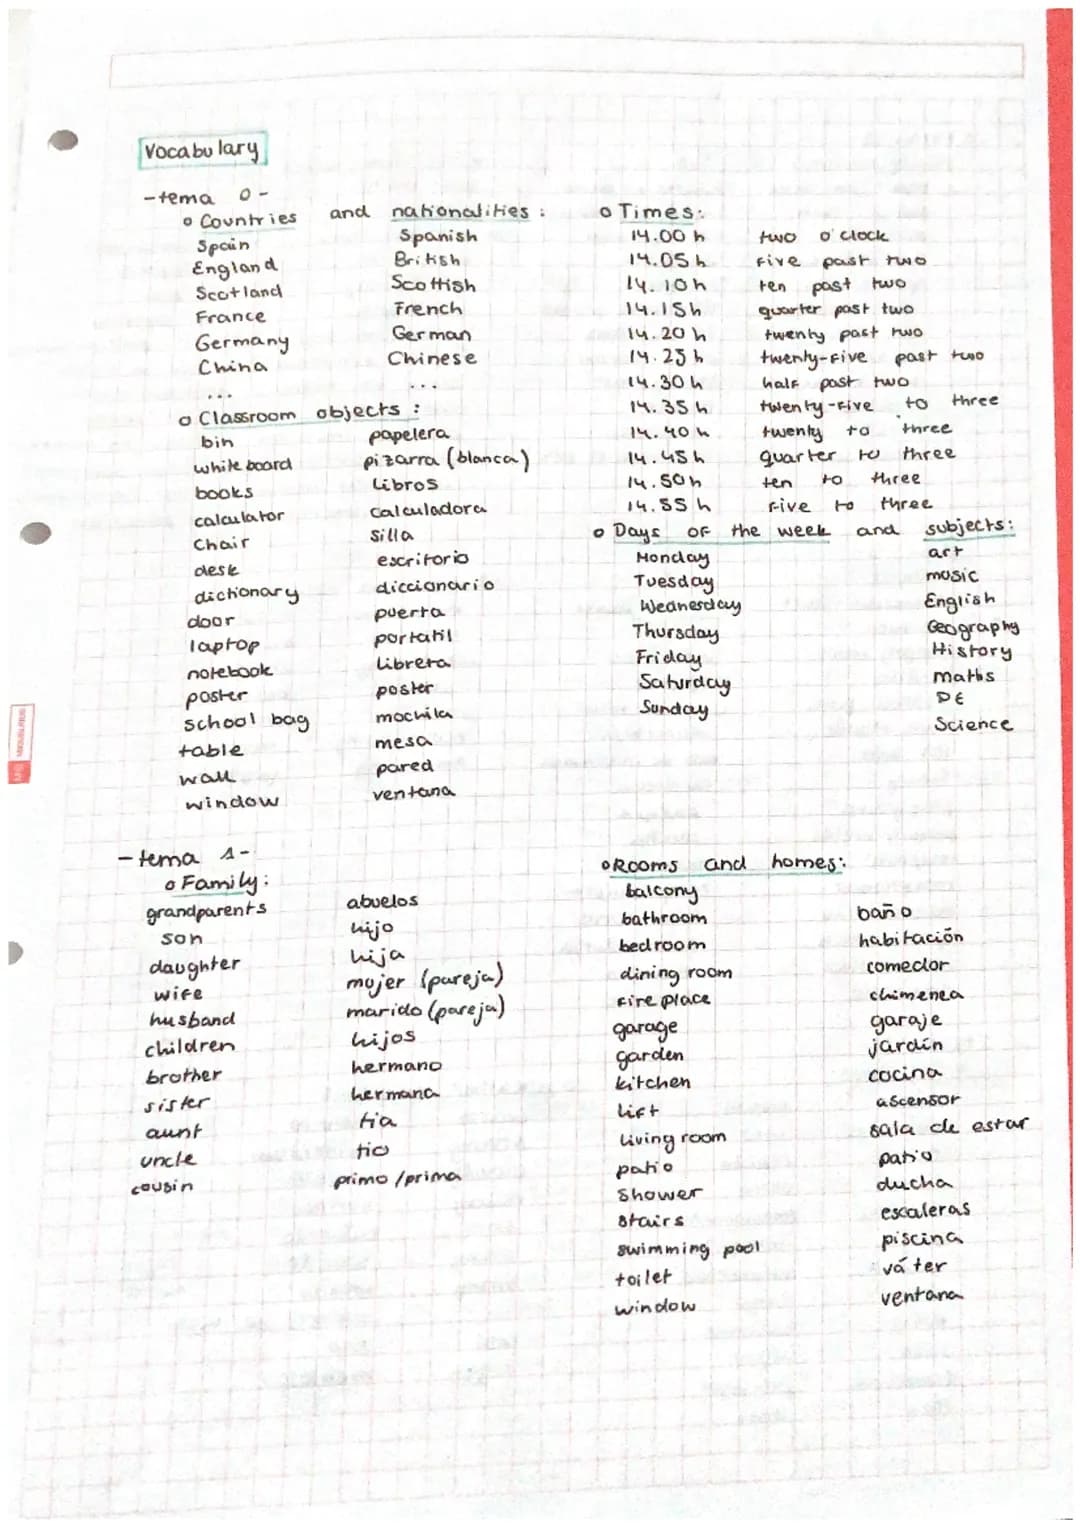 Vocabulary
-tema 0-
o Countries and nationalities:
Spain Spanish
England British
Scotland Scottish
France French
Germany German
China Chinese
... ...
o Classroom objects:
bin papelera
white board pizarra (blanca)
books libros
calculator calculadora
chair silla
desk escritorio
dictionary diccionario
door puerta
laptop portatil
notebook libreta
poster poster
school bag mochila
table mesa
wall pared
window ventana
o Times:
14.00 h two o'clock
14.05 h five past two
14.10 h ten past two
14.15h quarter past two
14.20 h twenty past two
14.25 h twenty-five past two
14.30 h half past two
14.35 h twenty-five to three
14.40 h twenty to three
14.45 h quarter to three
14.50h ten to three
14.55 h five to three
o Days of the week and subjects:
Monday art
Tuesday music
Wednesday English
Thursday Geography
Friday History
Saturday maths
Sunday PE
Science
-tema 1-
o Family:
grandparents abuelos
son hijo
daughter hija
wife mujer (pareja)
husband marido (pareja)
children hijos
brother hermano
sister hermana
aunt tia
uncle tio
cousin primo/prima
o Rooms and homes:
balcony
bathroom baño
bedroom habitación
dining room comedor
fire place chimenea
garage garaje
garden jardín
kitchen cocina
lift ascensor
living room sala de estar
patio patio
shower ducha
stairs escaleras
swimming pool piscina
toilet váter
window ventana